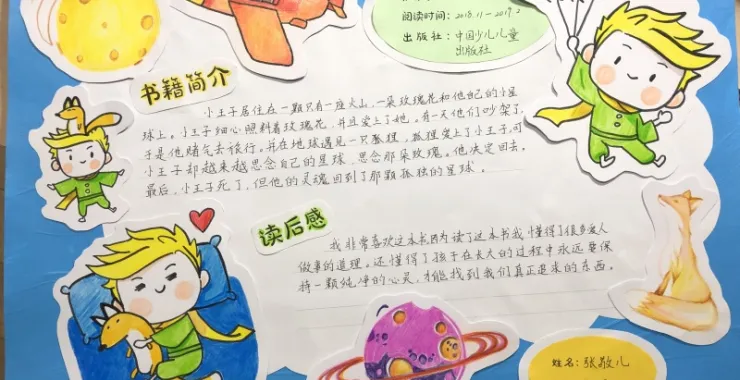 阅读时间：2018.11－2019.2
出版社：中国少儿儿童
出版社
书籍简介
小王子居住在一颗只有一座火山，一朵玫瑰花和他自己的小星
球上。小王子细心照料着玫瑰花，并且爱上了她。有一天他们吵架了，
于是他赌气去旅行。并在地球遇见一只狐狸，狐狸爱上了小王子，可
小王子却越来越思念自己的星球，思念那朵玫瑰。他决定回去。
最后，小王子死了，但他的灵魂回到了那颗孤独的星球。
读后感
我非常喜欢这本书，因为读了这本书我懂得了很多爱人
做事的道理。还懂得了孩子在长大的过程中永远要保
持一颗纯净的心灵，才能找到我们真正追求的东西。
姓名：张敬儿